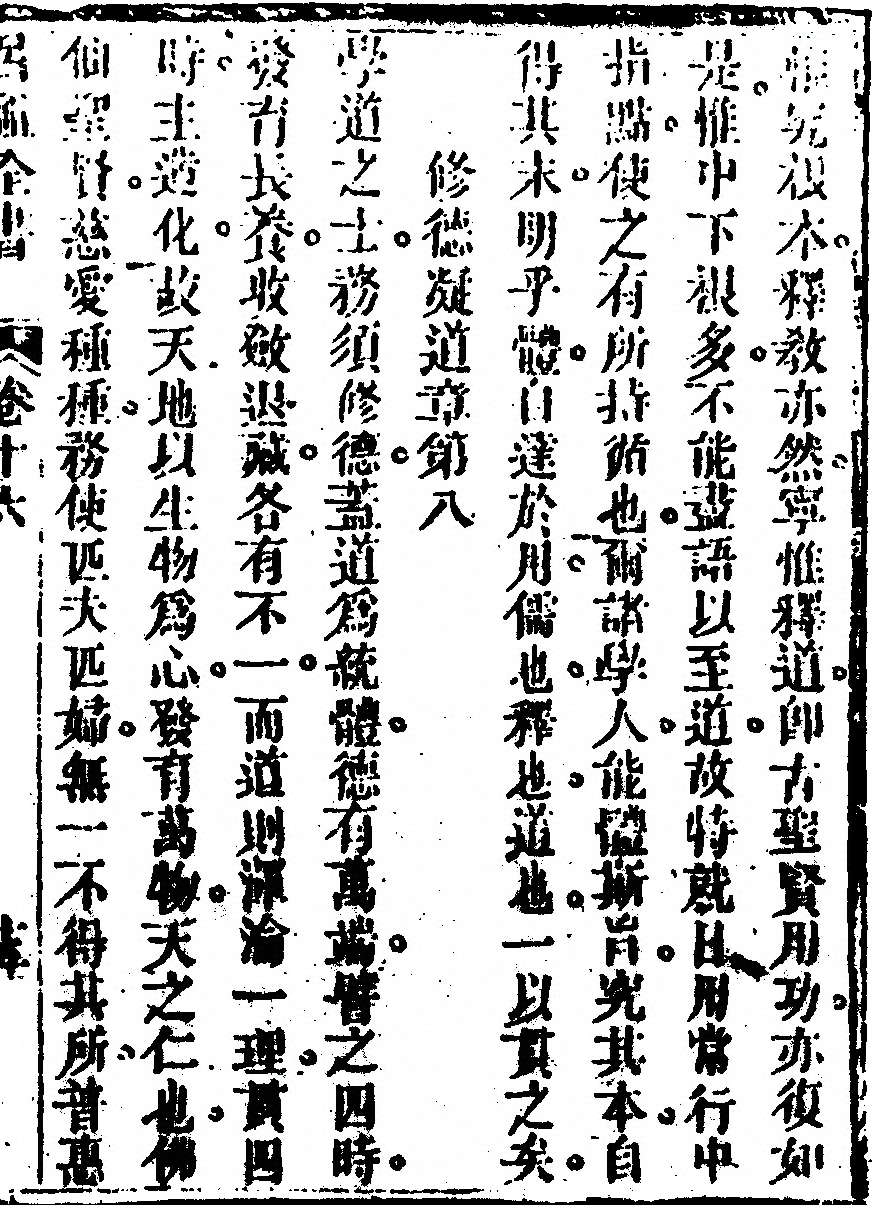 惟究根本釋教亦然寧惟釋道即古聖賢用功亦復如
是惟中下根多不能盡語以至道故特就日用常行中
指點使之有所持循也爾諸學人能體斯旨究其本自
得其末明乎體自達於用儒也釋也道也一以貫之矣
修德凝道章第八
學道之士務須修德蓋道爲統體德有萬端譬之四時
發育長養收斂退藏各有不一而道則渾淪一理貫四
時主造化故天地以生物爲心發育萬物天之仁也佛
仙聖賢慈愛種種務使匹夫匹婦無一不得其所普惠
全書 卷十六